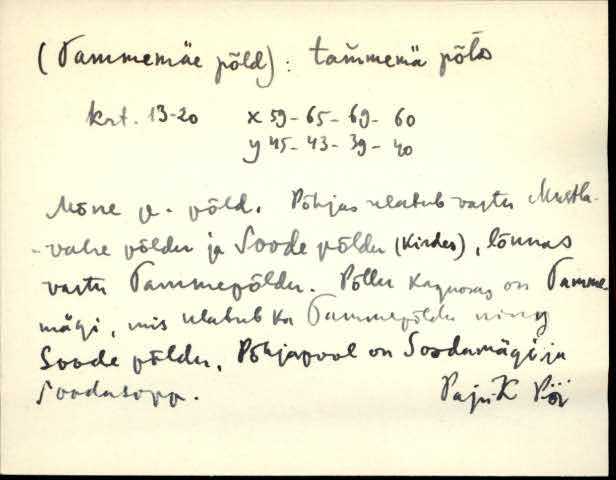 (Tammemäe põld): tam̆memä põl̀d
krt. 13-20 x 59-65-69-60
y 45-43-39-40
Mõne p. põld. Põhjas ulatub vastu Mustla-
-vahe põldu ja Soode põldu (Kirdes), lõunas
vastu Tammepõldu. Põllu kaguosas on Tamme-
mägi, mis ulatub ka Tammepõldu ning
Soode põldu. Põhjapool on Soodamägi ja
Soodasopp. Paju K Pöi